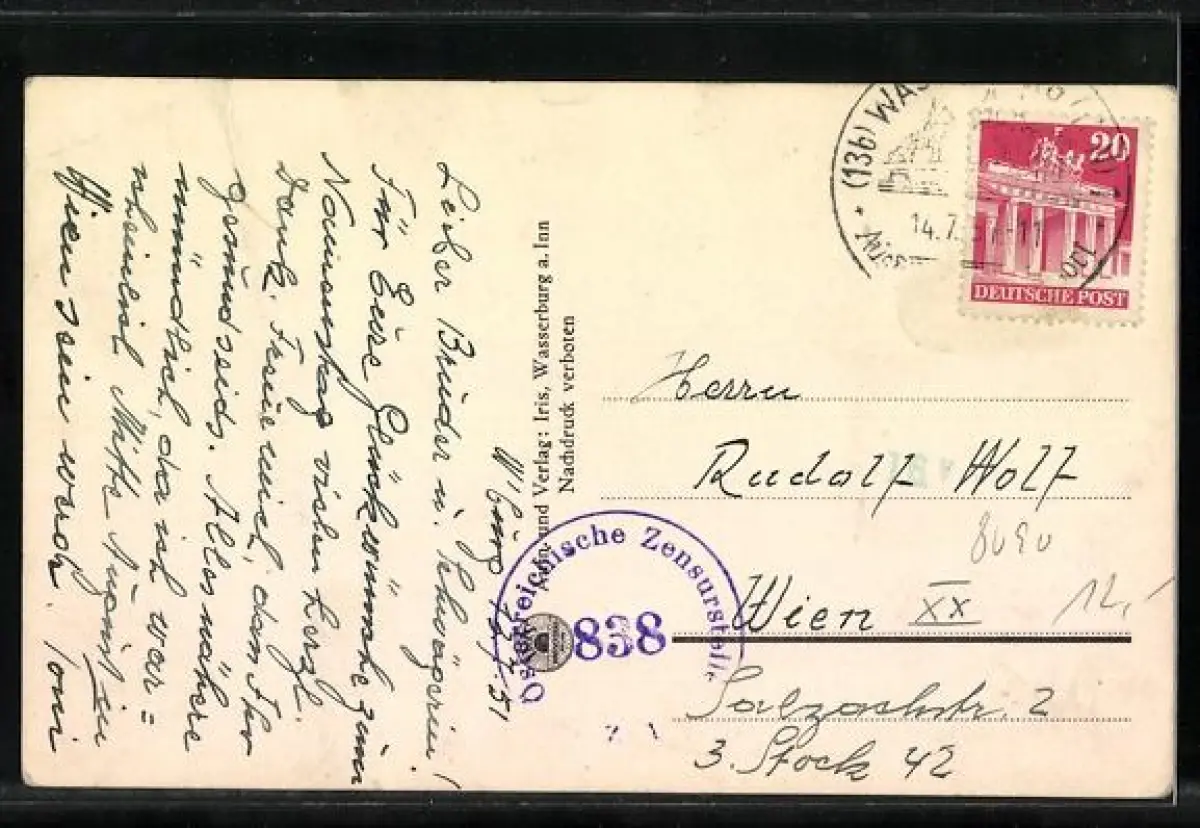 W'burg 12.7.51
Lieber Bruder u. Schwägerin!
Für Eure Glückwünsche zum
Namenstag vielen herzl.
Dank. Freue mich, dass Ihr
gesund seid. Alles nähere
mündlich, da ich war=
scheinlich Mitte August in
Wien sein werde. Toni
und Verlag: Iris, Wasserburg a. Inn
Nachdruck verboten
(13b) WAS
14.7.
20
DEUTSCHE POST
Herrn
Rudolf Wolf
Wien XX
Salzachstr. 2
3. Stock 42
12,-
Österreichische Zensurstelle
838